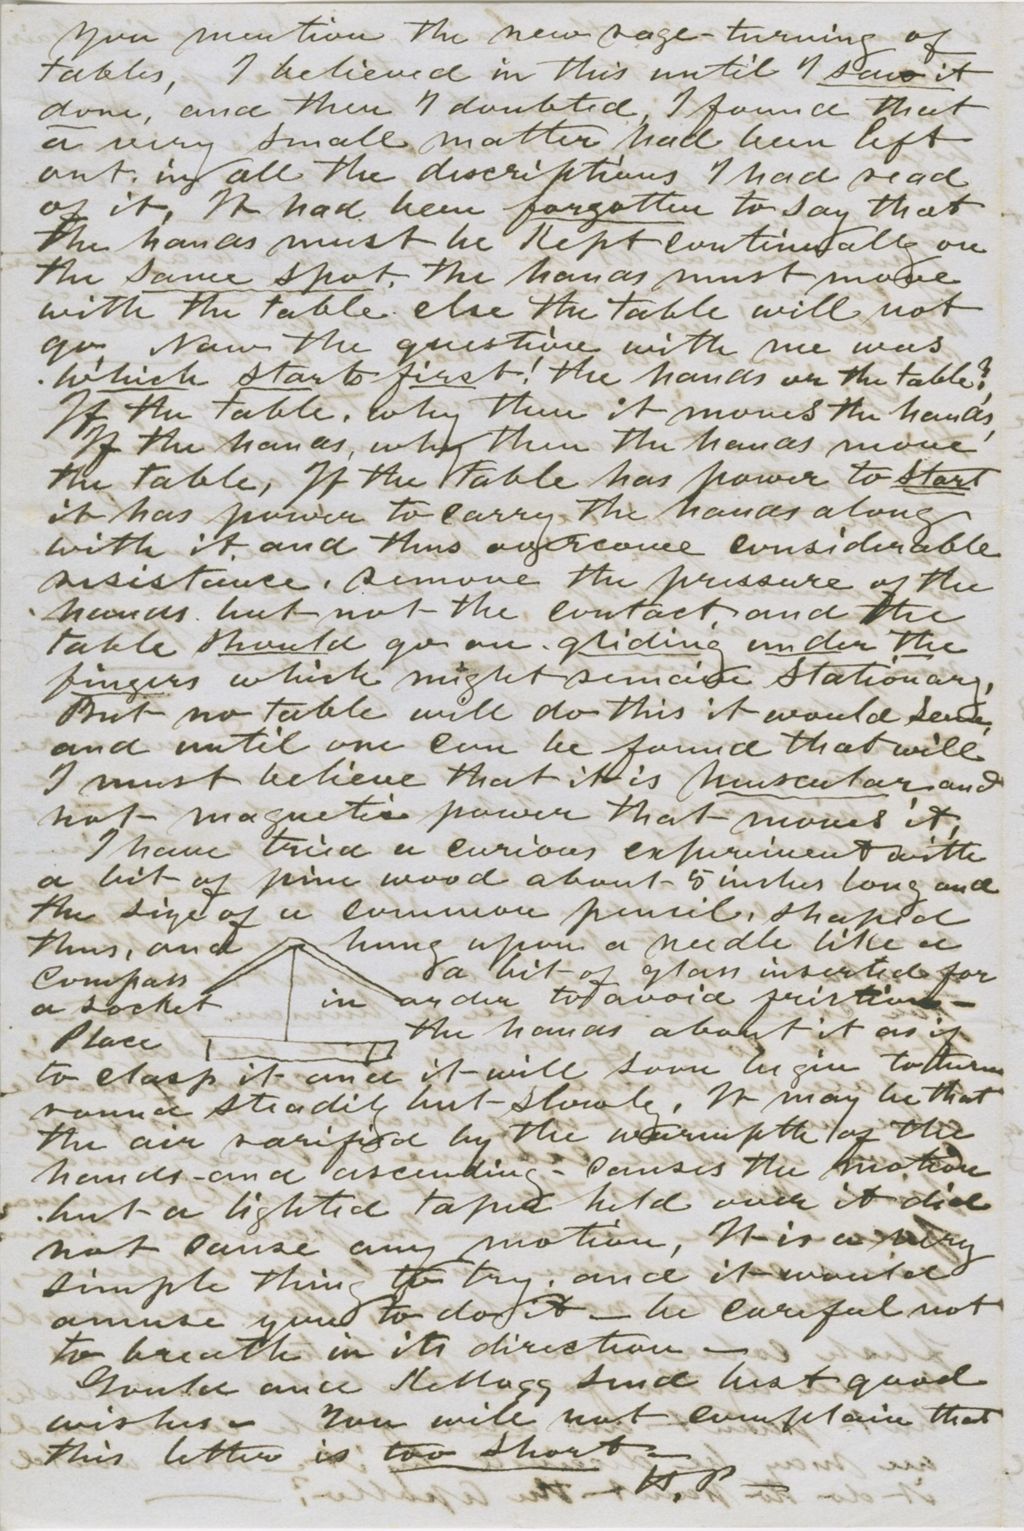 You mention the new rage - turning of
tables, I believed in this until I saw it
done, and then I doubted, I found that
a very small matter had been left
out. in all the descriptions I had read
of it, It had been forgotten to say that
the hands must be kept continually on
the same spot. the hands must move
with the table. else the table will not
go. Now the question with me was
which starts first! the hands or the table?
If the table. why then it moves the hands,
If the hands, why then the hands move
the table, If the table has power to start
it has power to carry the hands along
with it. and thus overcome considerable
resistance. remove the pressure of the
hands. but not the contact and the
table should go on. gliding under the
fingers which might remain stationary,
But no table will do this it would seem,
and until one can be found that will
I must believe that it is muscular and
not magnetic power that moves it,
I have tried a curious experiment with
a bit of pine wood about 5 inches long and
the size of a common pencil, shaped
thus, and hung upon a needle like a
compass a bit of glass inserted for
a socket in order to avoid friction -
Place the hands about it as if
to clasp it and it will soon begin to turn
round steadily but slowly. It may be that
the air rarified by the warmpth of the
hands - and ascending - causes the motion
but a lighted taper held over it did
not cause any motion, It is a very
simple thing to try. and it would
amuse you to do it - be careful not
to breath in its direction -
Gould and Kellogg send best good
wishes - You will not complain that
this letter is too short -
H. P.